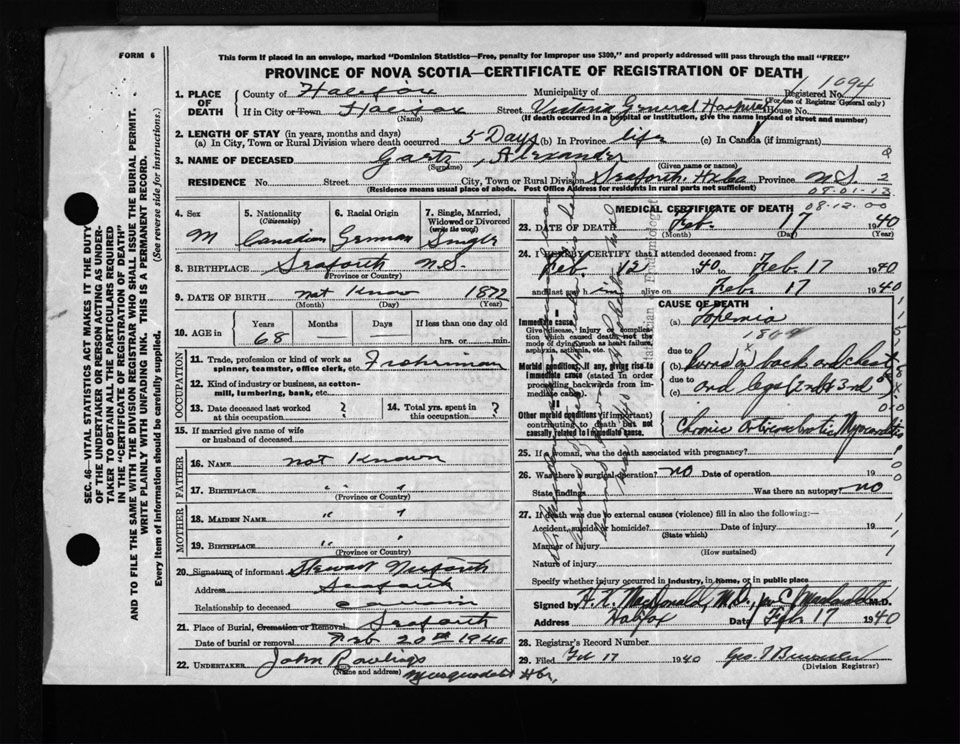 FORM 6
This form if placed in an envelope, marked "Dominion Statistics—Free, penalty for improper use $300," and properly addressed will pass through the mail "FREE"
PROVINCE OF NOVA SCOTIA—CERTIFICATE OF REGISTRATION OF DEATH
1. PLACE OF DEATH
County of Halifax Municipality of Registered No. 1094
(For use of Registrar General only)
If in City or Town Halifax Street Victoria General Hospital House No.
(Name) (If death occurred in a hospital or institution, give the name instead of street and number)
2. LENGTH OF STAY (in years, months and days)
(a) In City, Town or Rural Division where death occurred 5 Days (b) In Province life (c) In Canada (if immigrant)
3. NAME OF DECEASED Gaetz, Alexander
(Surname) (Given name or names)
RESIDENCE No. Street City, Town or Rural Division Seaforth Hfx Co Province N S 2
(Residence means usual place of abode. Post Office Address for residents in rural parts not sufficient)
08-01-13
08-12-00
4. Sex 5. Nationality 6. Racial Origin 7. Single, Married, Widowed or Divorced
(Citizenship) (write the word)
M Canadian German Single
8. BIRTHPLACE Seaforth N.S.
(Province or Country)
9. DATE OF BIRTH not know 1872
(Month) (Day) (Year)
10. AGE in Years Months Days If less than one day old
68 — — hrs. or min.
OCCUPATION
11. Trade, profession or kind of work as spinner, teamster, office clerk, etc. Fisherman
12. Kind of industry or business, as cotton-mill, lumbering, bank, etc.
13. Date deceased last worked at this occupation ? 14. Total yrs. spent in this occupation ?
15. If married give name of wife or husband of deceased
FATHER
16. NAME not known
17. BIRTHPLACE " "
(Province or Country)
MOTHER
18. MAIDEN NAME " "
19. BIRTHPLACE " "
(Province or Country)
20. Signature of informant Stewart
Address Seaforth
Relationship to deceased cousin
21. Place of Burial, Cremation or Removal Seaforth
Date of burial or removal Feb 20th 1940
22. UNDERTAKER John Rowlings
(Name and address) Musquodoboit Hbr,
MEDICAL CERTIFICATE OF DEATH
23. DATE OF DEATH Feb. 17 1940
(Month) (Day) (Year)
24. I HEREBY CERTIFY that I attended deceased from:
Feb. 12 1940 to Feb 17 1940
and last saw him alive on Feb. 17 1940
CAUSE OF DEATH
Immediate cause.
Give disease, injury or complication which caused death, not the mode of dying such as heart failure, asphyxia, asthenia, etc.
(a) Toxemia
due to
Morbid conditions. If any, giving rise to immediate cause (stated in order proceeding backwards from immediate cause).
(b) burns on back and chest
due to
(c) and legs (2nd & 3rd °)
II
Other morbid conditions (if important) contributing to death but not causally related to immediate cause.
Chronic Myocarditis
25. If a woman, was the death associated with pregnancy?
26. Was there a surgical operation? no Date of operation 19
State findings Was there an autopsy? no
27. If death was due to external causes (violence) fill in also the following:—
Accident, suicide or homicide? Date of injury 19
(State which)
Manner of injury
(How sustained)
Nature of injury
Specify whether injury occurred in industry, in home, or in public place
Signed by MacDonald, M.D. M.D.
Address Halifax Date Feb 17 1940
28. Registrar's Record Number
29. Filed Feb 17 1940
(Division Registrar)
SEC. 46—VITAL STATISTICS ACT MAKES IT THE DUTY
OF THE UNDERTAKER OR PERSON ACTING AS UNDER-
TAKER TO OBTAIN ALL THE PARTICULARS REQUIRED
IN THE "CERTIFICATE OF REGISTRATION OF DEATH"
AND TO FILE THE SAME WITH THE DIVISION REGISTRAR WHO SHALL ISSUE THE BURIAL PERMIT.
WRITE PLAINLY WITH UNFADING INK. THIS IS A PERMANENT RECORD.
Every item of information should be carefully supplied. (See reverse side for instructions.)